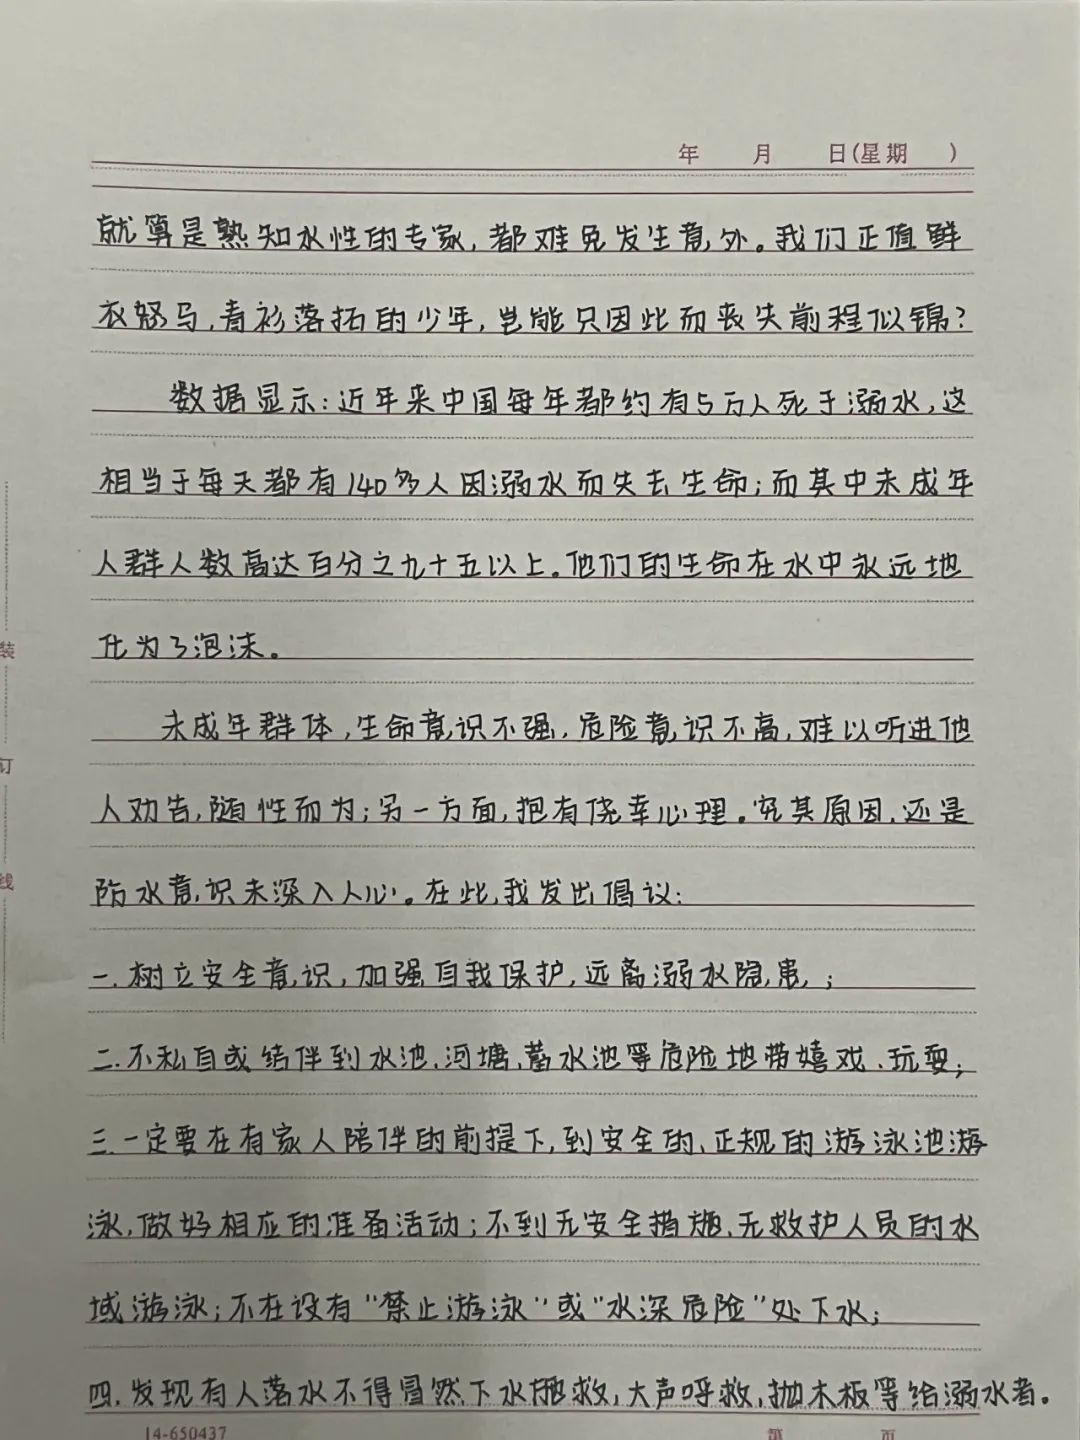 年 月 日(星期 )
就算是熟知水性的专家,都难免发生意外。我们正值鲜
衣怒马,青衫落拓的少年,岂能只因此而丧失前程似锦?
数据显示:近年来中国每年都约有5万人死于溺水,这
相当于每天都有140多人因溺水而失去生命;而其中未成年
人群人数高达百分之九十五以上。他们的生命在水中永远地
化为了泡沫。
未成年群体,生命意识不强,危险意识不高,难以听进他
人劝告,随性而为;另一方面,抱有侥幸心理。究其原因,还是
防水意识未深入人心。在此,我发出倡议:
一.树立安全意识,加强自我保护,远离溺水隐患;
二.不私自或结伴到水池、河塘、蓄水池等危险地带嬉戏、玩耍;
三.一定要在有家人陪伴的前提下,到安全的、正规的游泳池游
泳,做好相应的准备活动;不到无安全措施、无救护人员的水
域游泳;不在设有"禁止游泳"或"水深危险"处下水;
四.发现有人落水不得冒然下水施救,大声呼救,抛木板等给溺水者。
14-650437 第 页
装
订
线